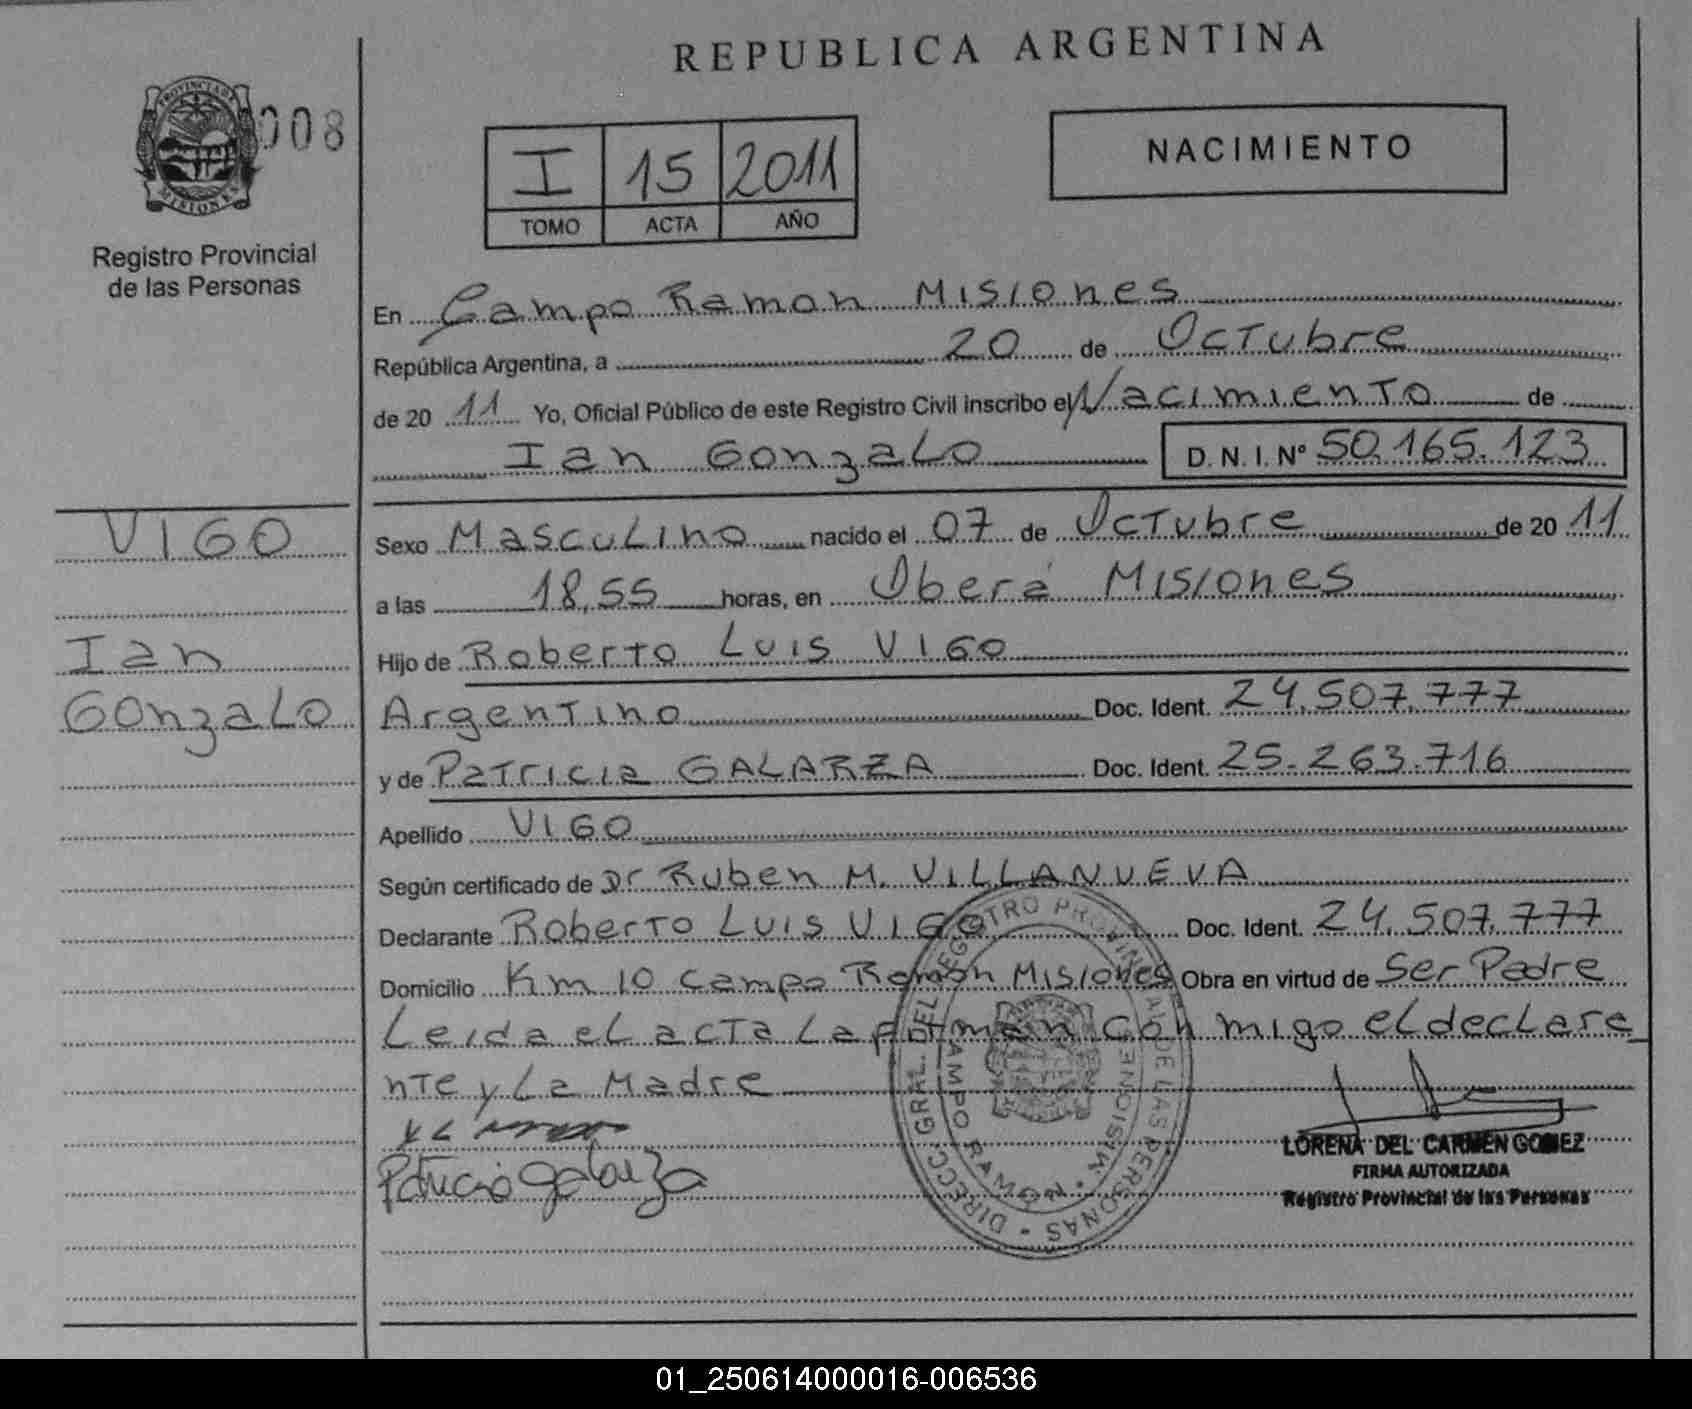 REPUBLICA ARGENTINA
PROVINCIA DE MISIONES
008
Registro Provincial
de las Personas
I 15 2011
TOMO ACTA AÑO
NACIMIENTO
En Campo Ramon Misiones
República Argentina, a 20 de Octubre
de 20 11 Yo, Oficial Público de este Registro Civil inscribo el Nacimiento de
Ian Gonzalo D. N. I. N° 50.165.123
VIGO
Ian
Gonzalo
Sexo Masculino nacido el 07 de Octubre de 20 11
a las 18,55 horas, en Oberá Misiones
Hijo de Roberto Luis VIGO
Argentino Doc. Ident. 24.507.777
y de Patricia GALARZA Doc. Ident. 25.263.716
Apellido VIGO
Según certificado de Dr Ruben M. VILLANUEVA
Declarante Roberto Luis VIGO Doc. Ident. 24.507.777
Domicilio Km 10 Campo Ramón Misiones Obra en virtud de Ser Padre
Leida el acta la firman con migo el declara
nte y La Madre
Patricia Galarza
DIRECC. GRAL. DEL REGISTRO PROVINCIAL DE LAS PERSONAS
CAMPO RAMON MISIONES
LORENA DEL CARMEN GOMEZ
FIRMA AUTORIZADA
Registro Provincial de las Personas
01_250614000016-006536